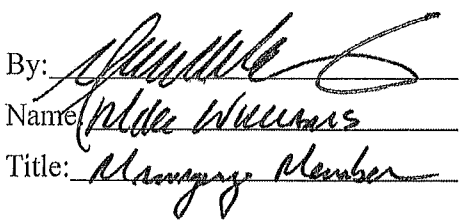 By:
Name: Williams
Title: Managing Member